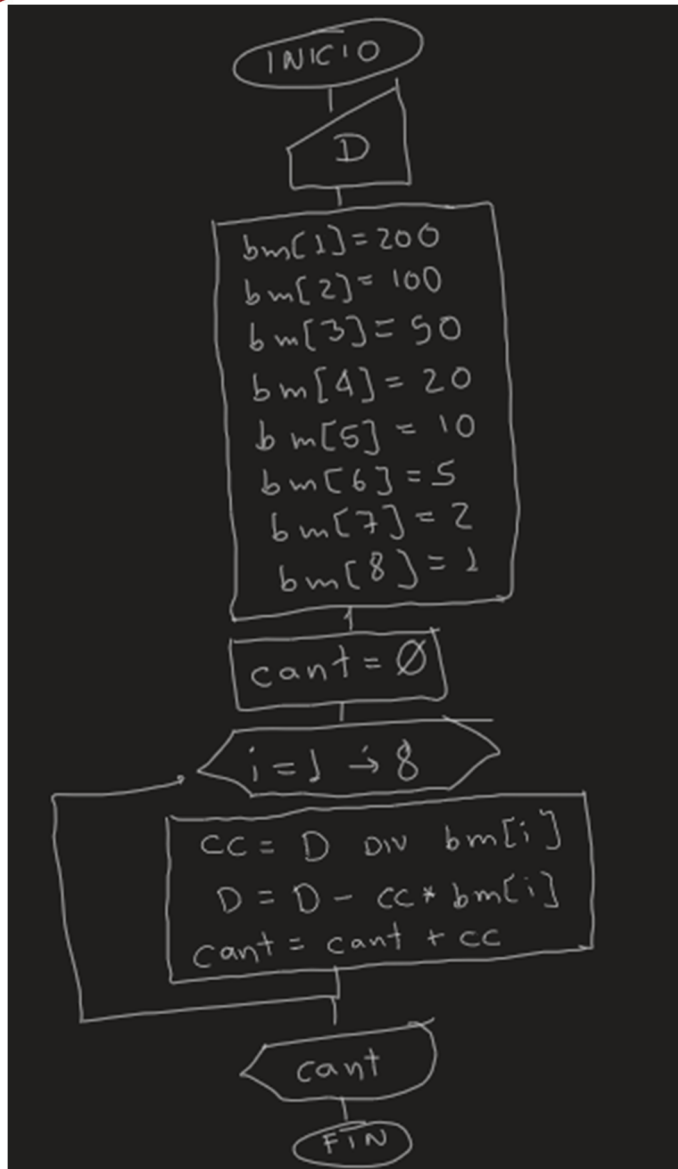 INICIO
D
bm[1]=200
bm[2]=100
bm[3]=50
bm[4]=20
bm[5]=10
bm[6]=5
bm[7]=2
bm[8]=1
cant=Ø
i=1→8
cc = D DIV bm[i]
D = D - cc*bm[i]
cant = cant + cc
cant
FIN